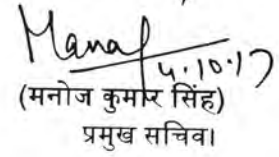 Manoj
4.10.17
(मनोज कुमार सिंह)
प्रमुख सचिव।